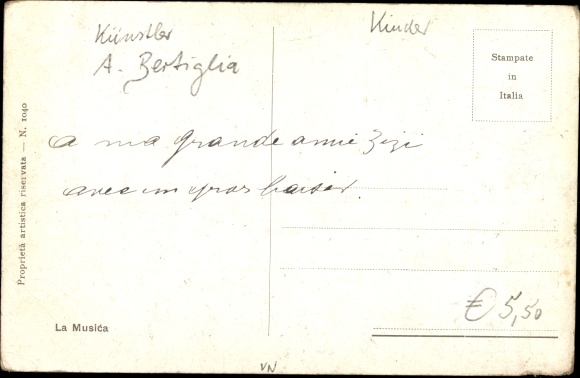 Künstler
A. Bertiglia
Kinder
Stampate
in
Italia
a ma grande amie Zizi
avec un gros baiser.
Proprietà artistica riservata — N. 1040
La Musica
€ 5,50
VN